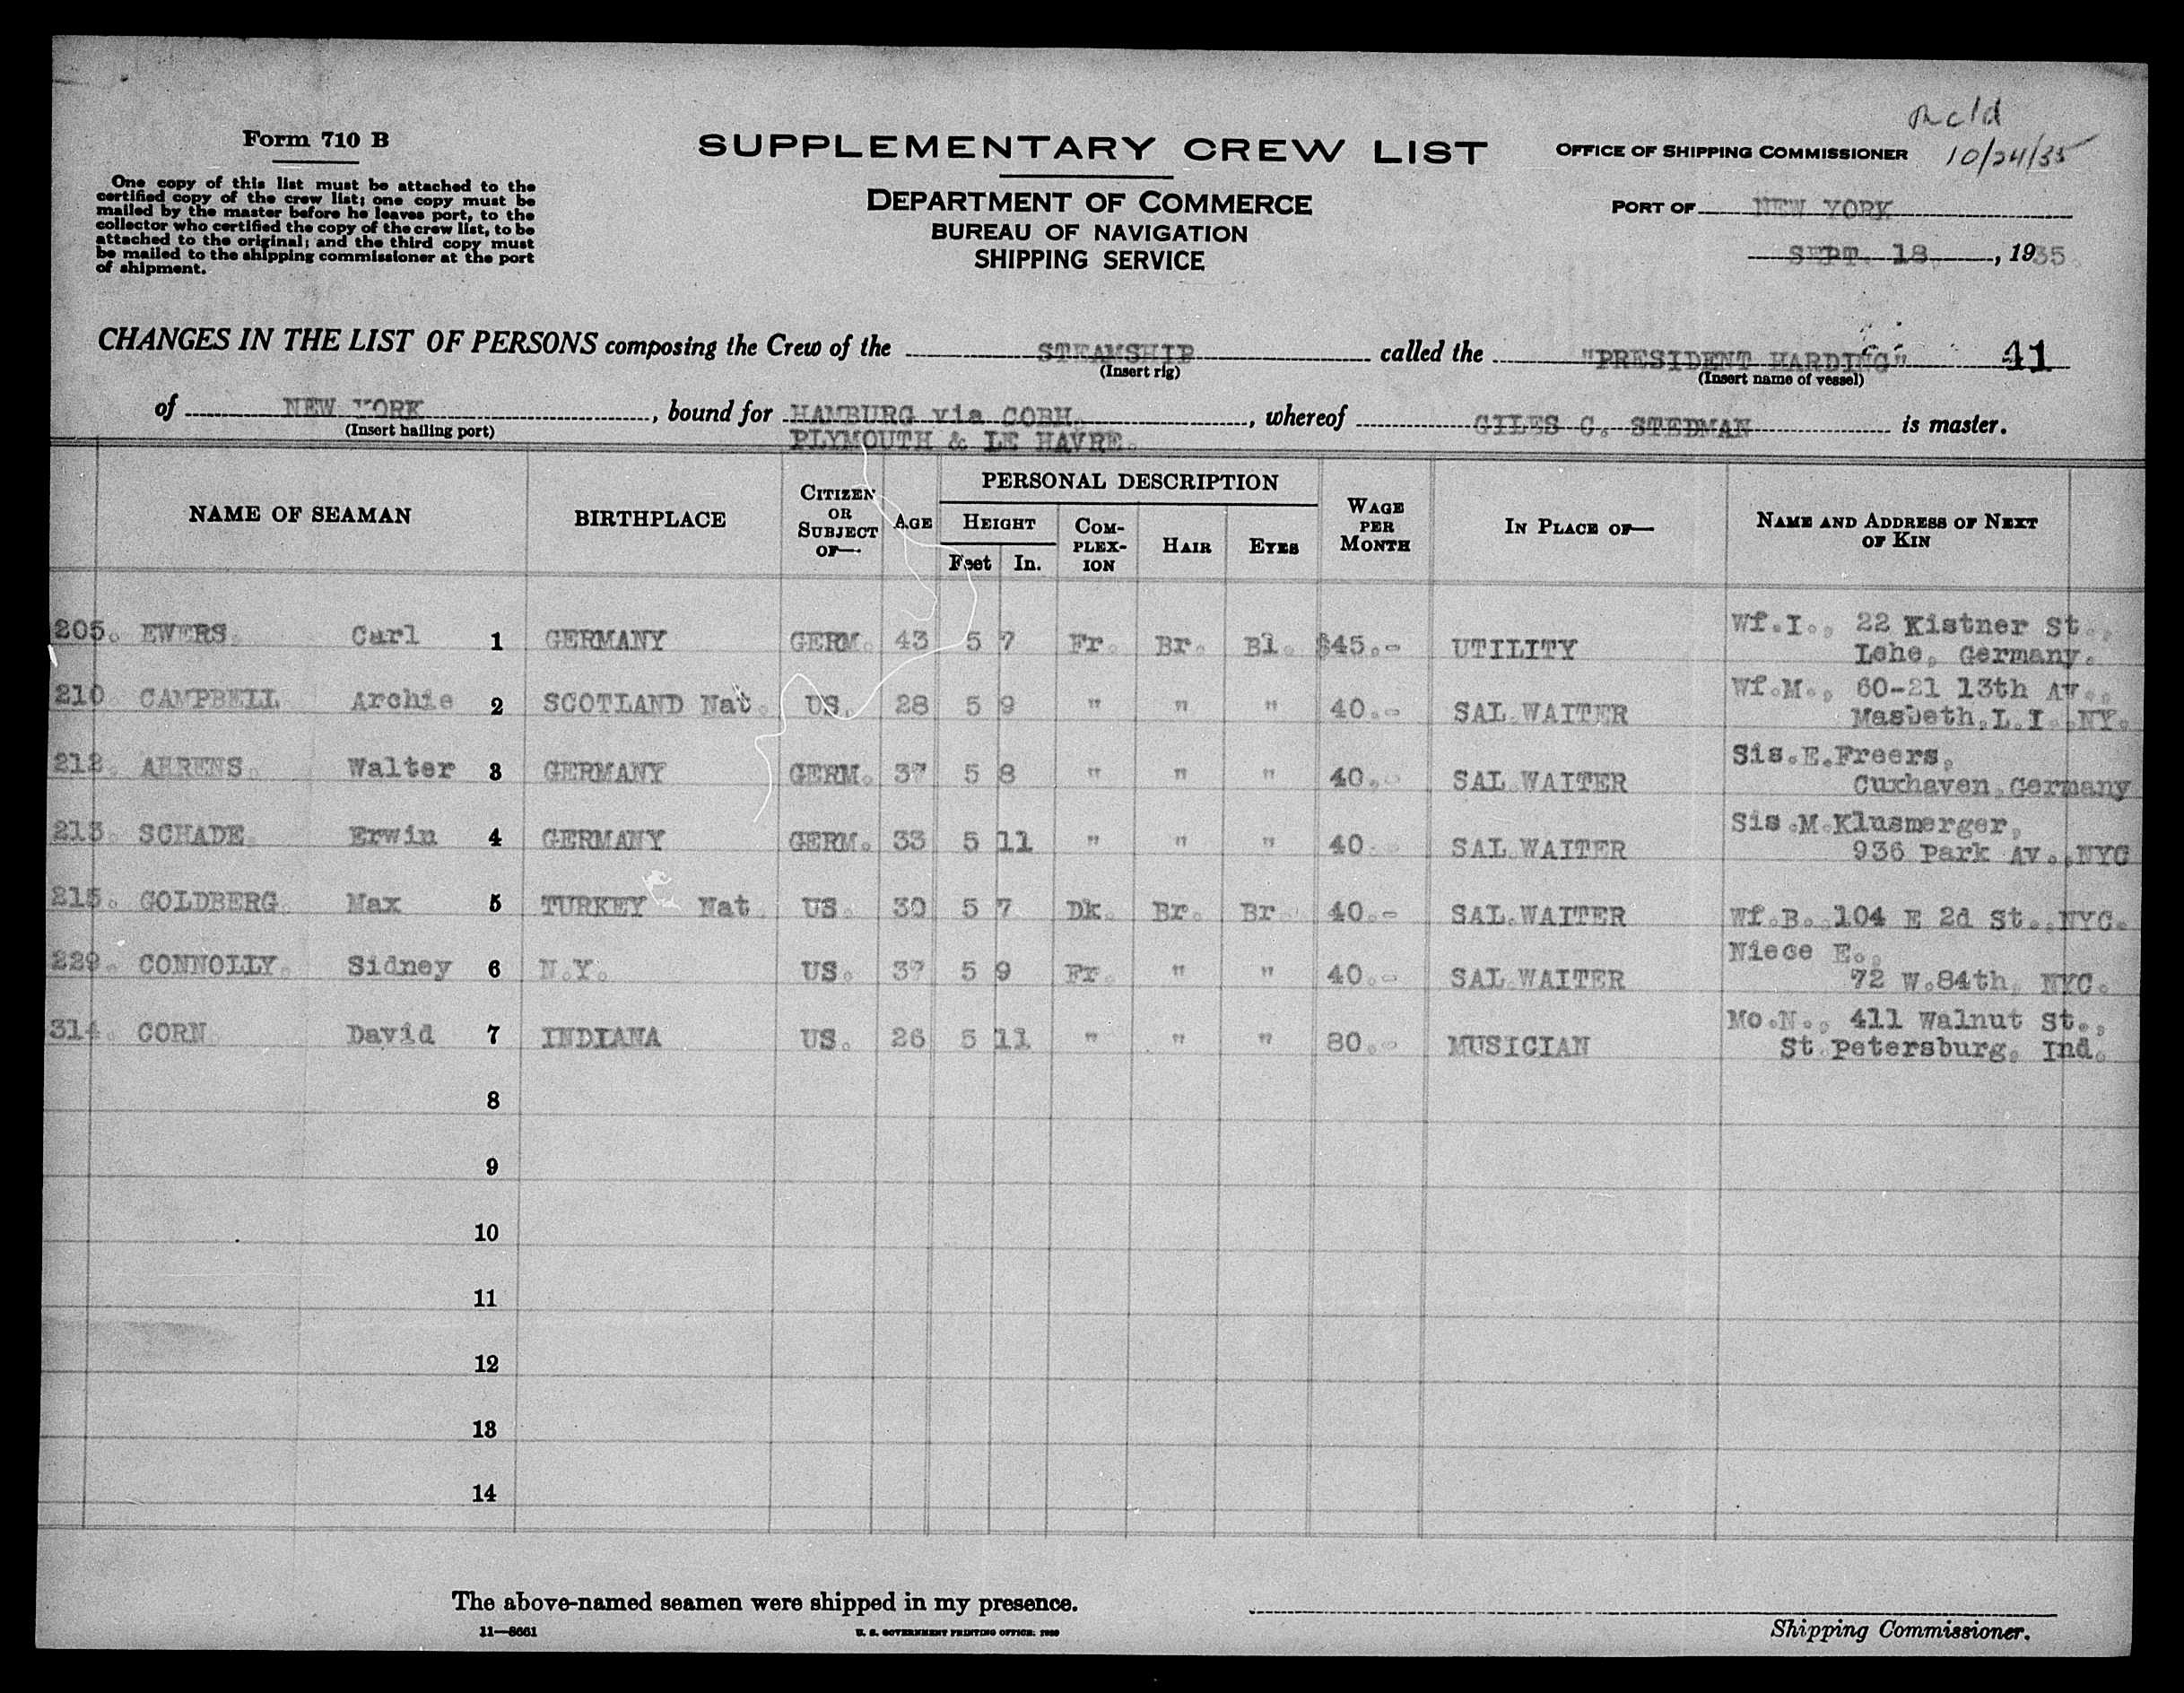 Form 710 B
One copy of this list must be attached to the
certified copy of the crew list; one copy must be
mailed by the master before he leaves port, to the
collector who certified the copy of the crew list, to be
attached to the original; and the third copy must
be mailed to the shipping commissioner at the port
of shipment.
SUPPLEMENTARY CREW LIST
DEPARTMENT OF COMMERCE
BUREAU OF NAVIGATION
SHIPPING SERVICE
OFFICE OF SHIPPING COMMISSIONER 10/24/35
PORT OF NEW YORK
SEPT. 18, 1935.
CHANGES IN THE LIST OF PERSONS composing the Crew of the STEAMSHIP called the "PRESIDENT HARDING" 41
(Insert rig) (Insert name of vessel)
of NEW YORK, bound for HAMBURG via COBH, whereof GILES C. STEDMAN is master.
(Insert hailing port) PLYMOUTH & LE HAVRE.
NAME OF SEAMAN BIRTHPLACE CITIZEN OR SUBJECT OF— AGE PERSONAL DESCRIPTION HEIGHT Feet In. COMPLEXION HAIR EYES WAGE PER MONTH IN PLACE OF— NAME AND ADDRESS OF NEXT OF KIN
205. EWERS. Carl 1 GERMANY GERM. 43 5 7 Fr. Br. Bl. $45.- UTILITY Wf.I., 22 Kistner St.,
Lehe, Germany.
210 CAMPBELL Archie 2 SCOTLAND Nat. US. 28 5 9 " " " 40.- SAL.WAITER Wf.M., 60-21 13th Av.,
Masbeth,L.I.,NY.
212. AHRENS. Walter 3 GERMANY GERM. 37 5 8 " " " 40.- SAL.WAITER Sis.E.Freers,
Cuxhaven,Germany
213. SCHADE. Erwin 4 GERMANY GERM. 33 5 11 " " " 40.- SAL.WAITER Sis.M.Klusmerger,
936 Park Av.,NYC
215. GOLDBERG. Max 5 TURKEY Nat. US. 30 5 7 Dk. Br. Br. 40.- SAL.WAITER Wf.B. 104 E 2d St.,NYC.
229. CONNOLLY. Sidney 6 N.Y. US. 37 5 9 Fr. " " 40.- SAL.WAITER Niece E.,
72 W.84th, NYC.
314. CORN. David 7 INDIANA US. 26 5 11 " " " 80.- MUSICIAN Mo.N., 411 Walnut St.,
St.Petersburg, Ind.
8
9
10
11
12
13
14
The above-named seamen were shipped in my presence.
11—8661 U. S. GOVERNMENT PRINTING OFFICE:
Shipping Commissioner.